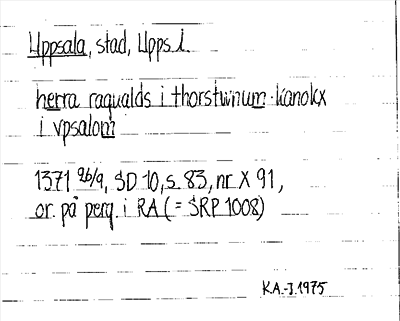 Uppsala, stad, Upps. l.
herra raqualds i thorstwnum kanokx
i vpsalom
1371 26/9, SD 10, s. 83, nr X 91,
or. på perg. i RA (= SRP 1008)
K.A.-J. 1975